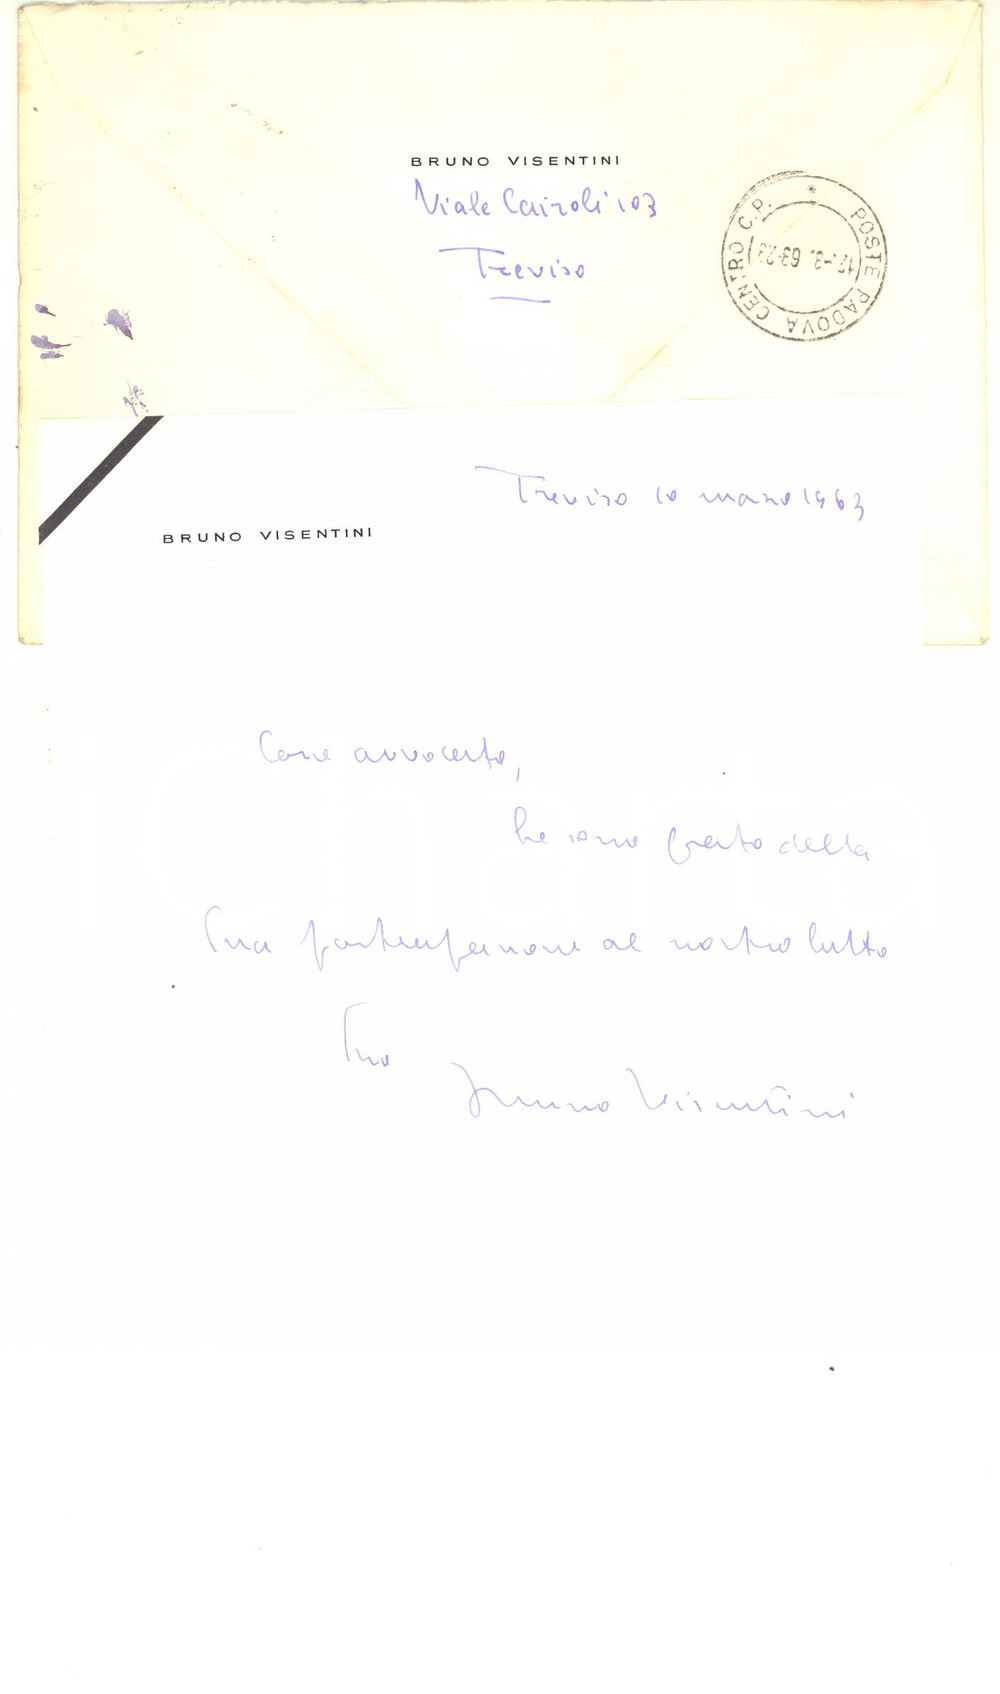 BRUNO VISENTINI
Viale Cairoli 103
Treviso
POSTE PADOVA CENTRO C.P. *
12.-3. 63-23
Treviso 10 marzo 1963
BRUNO VISENTINI
Caro avvocato,
Le sono grato della
Sua partecipazione al nostro lutto
Suo
Bruno Visentini